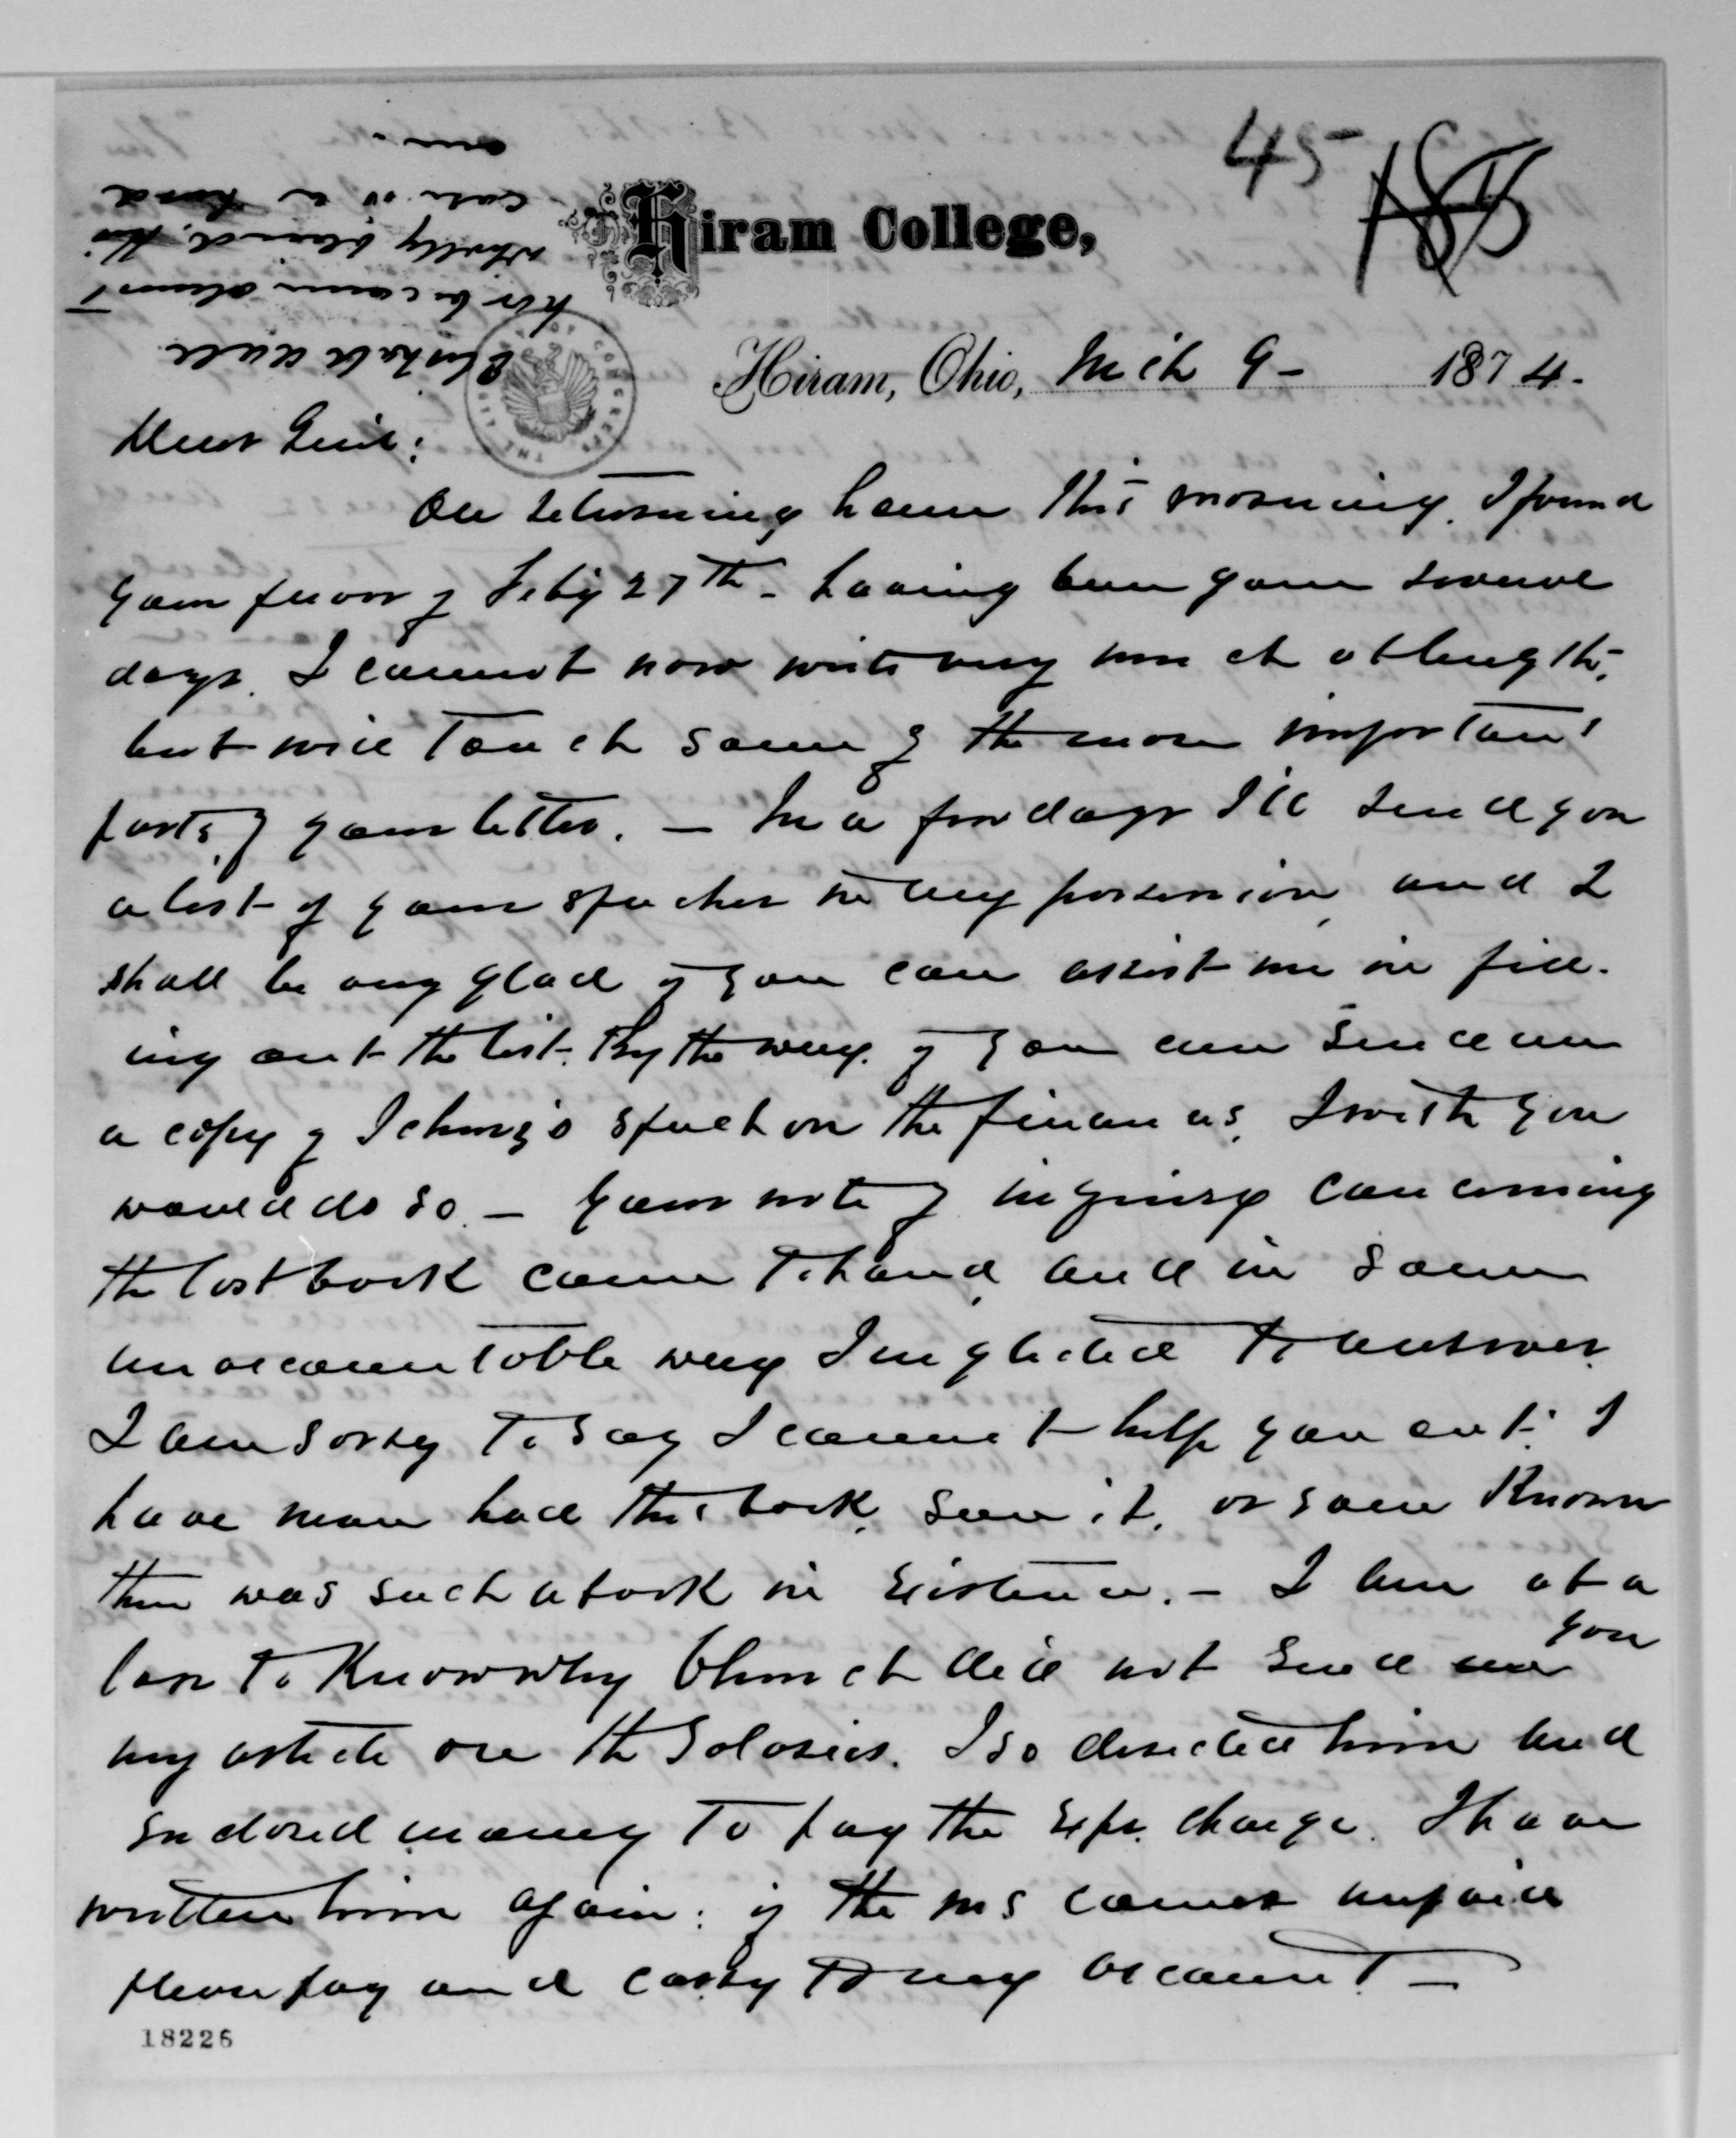 45
Hiram College,
Hiram, Ohio, Mch 9- 1874.
Dear Genl:
On returning home this morning, I found
your favor of Feby 27th - having been gone several
days. I cannot now write very much at length,
but will touch some of the more important
parts of your letter. — In a few days I'll send you
a list of your speeches in my possession, and I
shall be very glad if you can assist me in fill-
ing out the list. By the way, if you can send me
a copy of Schurz's speech on the finances, I wish you
would do so. — Your note of inquiry concerning
the lost book came to hand, and in some
unaccountable way I neglected to answer.
I am sorry to say I cannot help you out: I
have never had the book, seen it, or even known
there was such a book in existence. — I am at a
loss to know why Church did not send you
my article on the Salaries. I so directed him and
enclosed money to pay the Exps. charge. I have
written him again: if the MS comes unpaid
please pay and carry to my account —
18226
wholly blind. His
case is a hard
one.